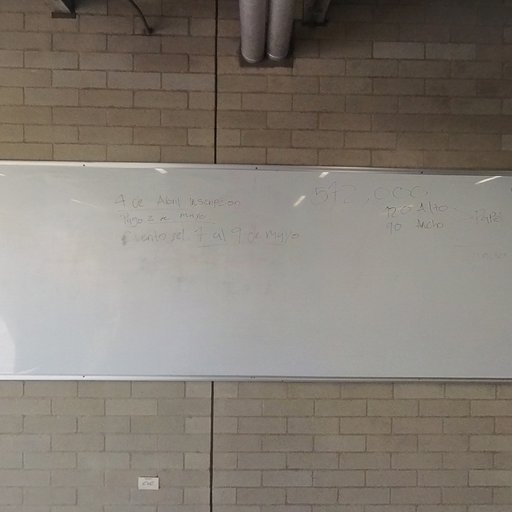 7 de Abril Inscripción
Pago 2 de mayo.
Evento del 7 al 9 de mayo
572,000.
120 Alto
90 Ancho